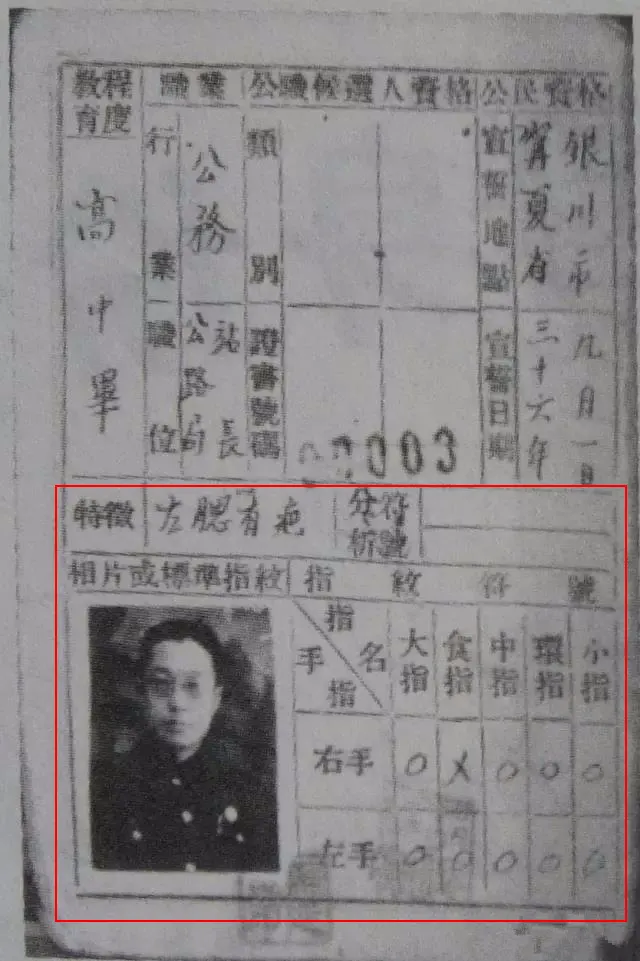 公民資格
宣誓地點
寧夏省銀川市
宣誓日期
三十六年九月一日
公職候選人資格
類別
證書號碼
003
職業
行業
公務
職位
公路局站長
教育程度
高中畢
特徵 左腮有疤
分析符號
相片或標準指紋
指紋符號
手指 指名 大指 食指 中指 環指 小指
右手 O X O O O
左手 O O O O O